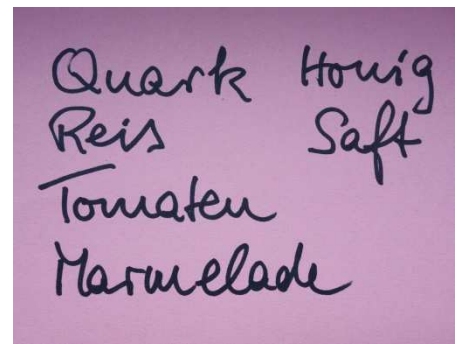 Quark Honig
Reis Saft
Tomaten
Marmelade